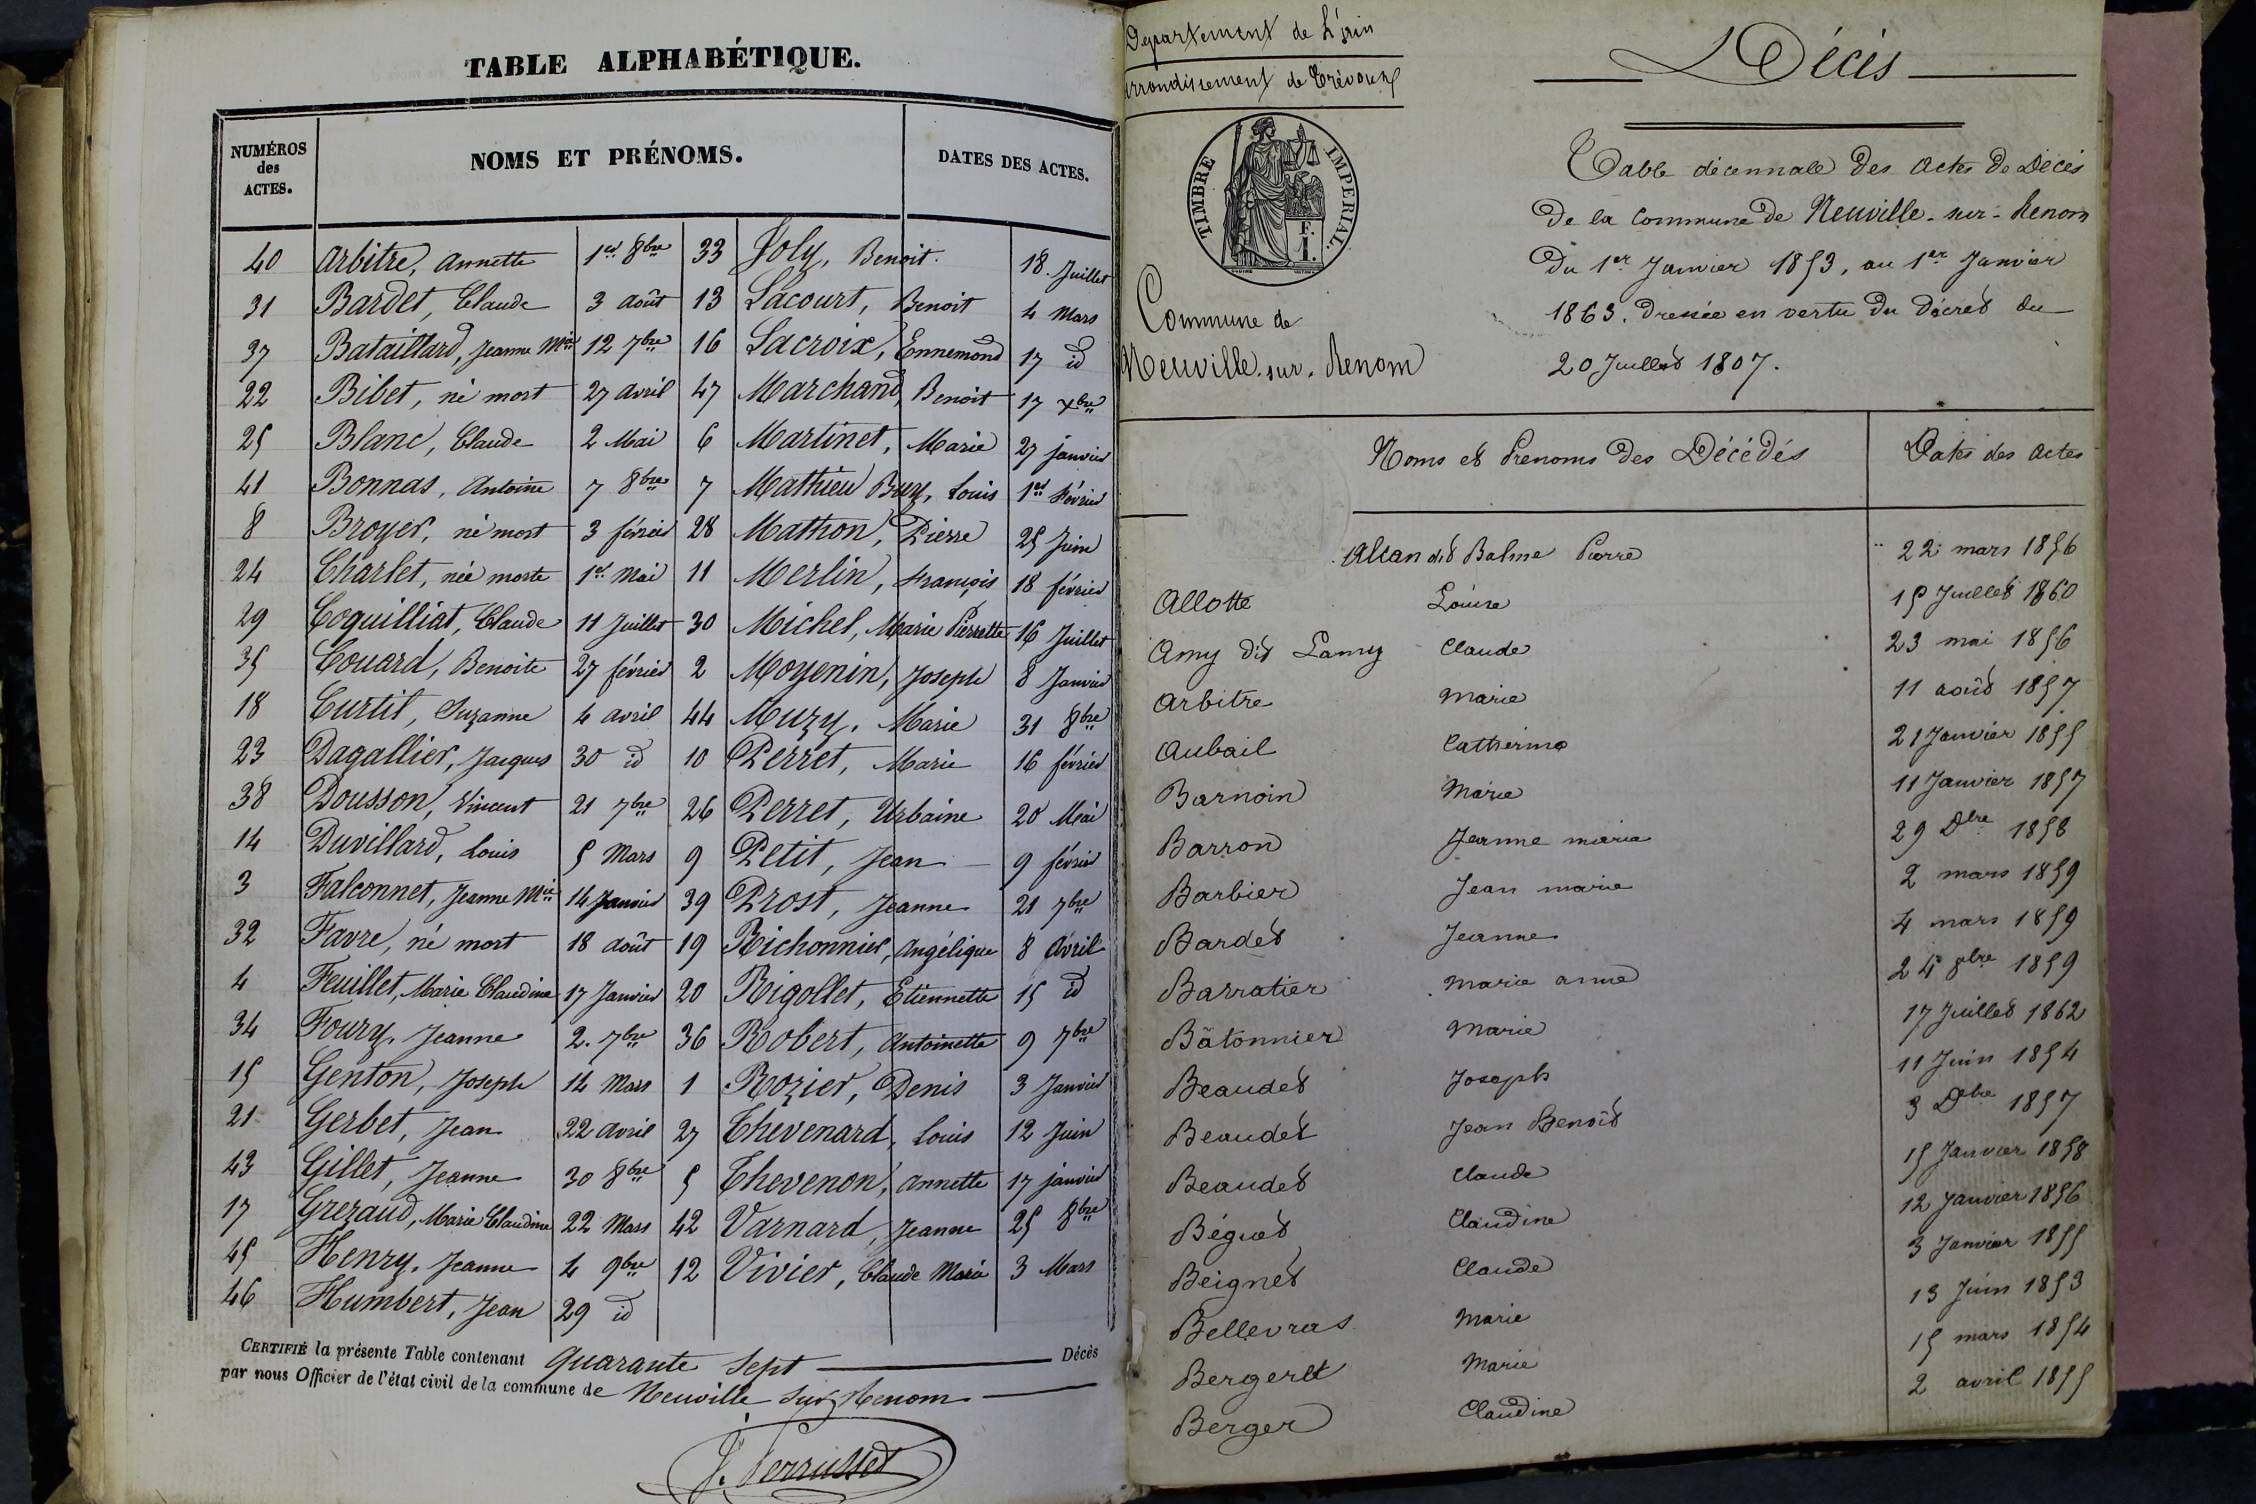 TABLE ALPHABÉTIQUE.
NUMÉROS des ACTES.
NOMS ET PRÉNOMS.
DATES DES ACTES.
40 Arbitre, Annette 1er 8bre
31 Bardet, Claude 3 août
37 Bataillard, Jeanne Mie 12 7bre
22 Bibet, né mort 27 avril
25 Blanc, Claude 2 Mai
41 Bonnas, Antoine 7 8bre
8 Broyer, né mort 3 février
24 Charlet, née morte 1er Mai
29 Coquilliat, Claude 11 Juillet
35 Couard, Benoite 27 février
18 Curtil, Suzanne 4 avril
23 Dagallier, Jacques 30 id
38 Dousson, Vincent 21 7bre
14 Duvillard, Louis 5 Mars
3 Falconnet, Jeanne Mie 14 Janvier
32 Favre, né mort 18 août
4 Feuillet, Marie Claudine 17 Janvier
34 Foury, Jeanne 2. 7bre
15 Genton, Joseph 14 Mars
21 Gerbet, Jean 22 avril
43 Gillet, Jeanne 30 8bre
17 Grezaud, Marie Claudine 22 Mars
45 Henry, Jeanne 4 9bre
46 Humbert, Jean 29 id
33 Joly, Benoit. 18. Juillet
13 Lacourt, Benoit 4 Mars
16 Lacroix, Ennemond 17 id
47 Marchand, Benoit 17 xbre
6 Martinet, Marie 27 janvier
7 Mathieu Buy, Louis 1er Février
28 Mathon, Pierre 25 Juin
11 Merlin, François 18 février
30 Michel, Marie Pierrette 16 Juillet
2 Moyenin, Joseph 8 Janvier
44 Muzy, Marie 31 8bre
10 Perret, Marie 16 février
26 Perret, Urbaine 20 Mai
9 Petit, Jean 9 février
39 Prost, Jeanne 21 7bre
19 Richonnier, Angélique 8 Avril
20 Rigollet, Etiennette 15 id
36 Robert, Antoinette 9 7bre
1 Rozier, Denis 3 Janvier
27 Thevenard, Louis 12 Juin
5 Thevenon, Annette 17 janvier
42 Varnard, Jeanne 25 8bre
12 Vivier, Claude Marie 3 Mars
CERTIFIÉ la présente Table contenant quarante sept Décès
par nous Officier de l'état civil de la commune de Neuville sur Renom
Perrusset
Département de L'ain
arrondissement de Trévoux
TIMBRE IMPÉRIAL.
F.
1.
Commune de
Neuville-sur-Renom
Décès
Table décennale des actes de Décès
de la Commune de Neuville-sur-Renom
du 1er Janvier 1853, au 1er Janvier
1863. dressée en vertu du décret du
20 Juillet 1807.
Noms et Prenoms des Décédés Dates des actes
Allan dit Balme Pierre 22 mars 1856
Allotte Louise 15 Juillet 1860
Amy dit Lamy Claude 23 mai 1856
Arbitre Marie 11 août 1857
Aubail Catherine 21 Janvier 1855
Barnoin Marie 11 Janvier 1857
Barron Jeanne marie 29 Dbre 1858
Barbier Jean marie 2 mars 1859
Bardet Jeanne 4 mars 1859
Barratier Marie anne 24 8bre 1859
Bâtonnier Marie 17 Juillet 1862
Beaudet Joseph 11 Juin 1854
Beaudet Jean Benoît 3 Dbre 1857
Beaudet Claude 15 Janvier 1858
Béguet Claudine 12 Janvier 1856
Beignet Claude 3 Janvier 1855
Bellevras Marie 13 Juin 1853
Bergeret Marie 15 mars 1854
Berger Claudine 2 avril 1855